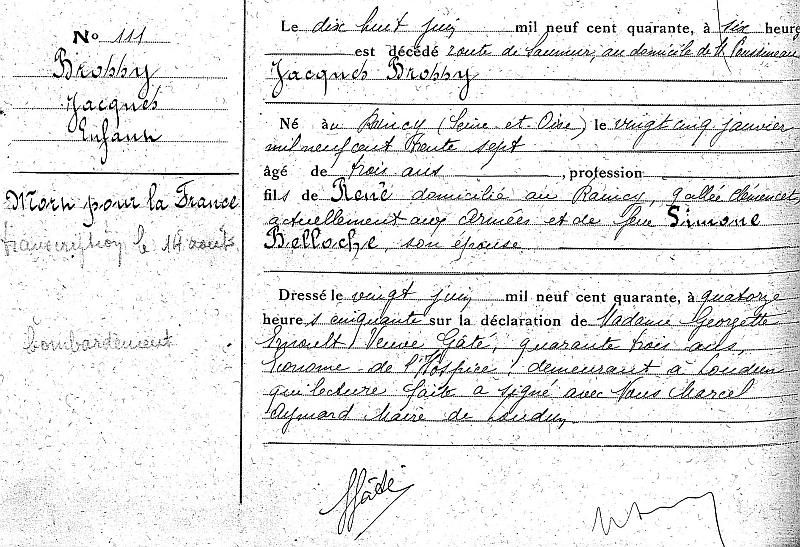 No 111
Brophy
Jacques
Enfant
Mort pour la France
transcription le 14 août
bombardement
Le dix huit juin mil neuf cent quarante, à six heure
est décédé route de Saumur, au domicile de M
Jacques Brophy
Né au Raincy (Seine-et-Oise) le vingt cinq janvier
mil neuf cent trente sept
âgé de trois ans, profession
fils de René domicilié au Raincy, 9 allée Clémencet,
actuellement aux Armées et de feue Simone
Belloche, son épouse
Dressé le vingt juin mil neuf cent quarante, à quatorze
heure s cinquante sur la déclaration de Madame Georgette
Ernoult Veuve Gâté, quarante trois ans,
économe de l'Hospice, demeurant à Loudun
qui lecture faite a signé avec Nous Marcel
Aymard Maire de Loudun
Gâté